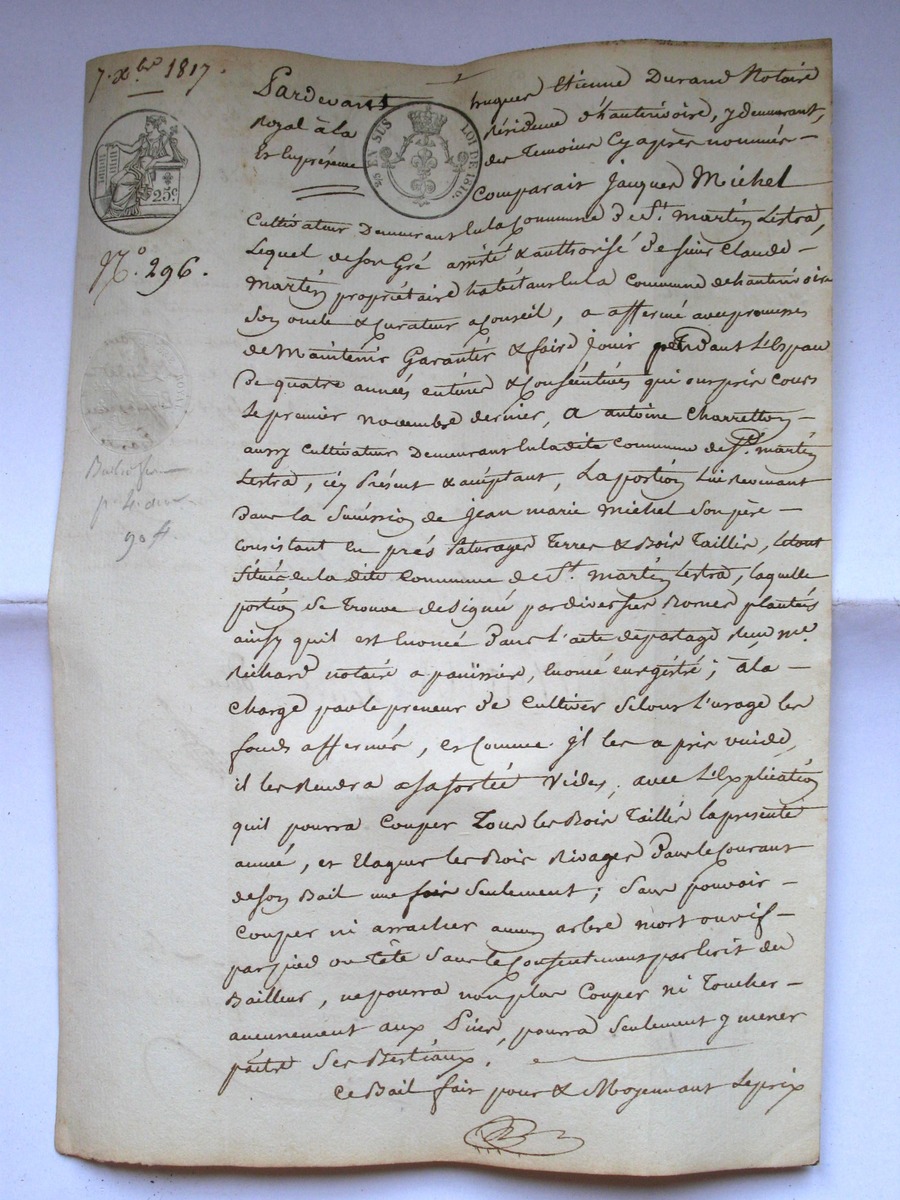 7. Xbre 1817.
Pardevant hugues Etienne Durand Notaire
Royal à la Résidence d'hauterivoire, y demeurant,
Et En présence des Temoins Cy après nommés —
EN SUS
LOI DE 1816.
25c
Comparait Jacques Michel
No. 296.
Cultivateur Demeurant en la Commune de St. martin Lestra,
Lequel de son Gré assisté & authorisé de sieur Claude —
Martin propriétaire habitant en la Commune dehauterivoire
Son oncle & Curateur a Conseil, a affermé avec promesses
de Maintenir Garantir & faire Jouir pendant L'Espace
De quatre années entières & Consécutives qui ont pris Cours
Le premier novembre dernier, a antoine Charretton —
aussy Cultivateur Demeurant en ladite Commune de St. martin
Lestra, icy Présent & acceptant, La portion Lui Revenant
Dans la Succession de Jean marie Michel Son père —
Consistant En prés Paturages Terres & Bois Taillis, le tout
Situé en la dite Commune de St. martin Lestra, laquelle
portion Se Trouve designée par diverses Bornes plantées
ainsy quil est Enoncé Dans L'acte de partage Reçu me.
Richard notaire a panissière, Enoncé enregistré; à la —
Charge par le preneur De Cultiver Selon L'usage les
fonds affermés, et Comme il les a pris vuide,
il les Rendra a sa sortie Vides, avec L'Explication
quil pourra Couper Tous les Bois Taillis la présente
année, et Elaguer les Bois Rivages Dans le Courant
de son Bail une fois Seulement; Sans pouvoir —
Couper ni arracher aucun arbre mort ou vif —
par pied ou tête Sans le Consentement par Ecrit du
Bailleur, ne pourra non plus Couper ni Toucher —
aucunement aux Pins, pourra Seulement y mener
paitre Ses Bestiaux.
Ce Bail fait pour & Moyennant Le prix